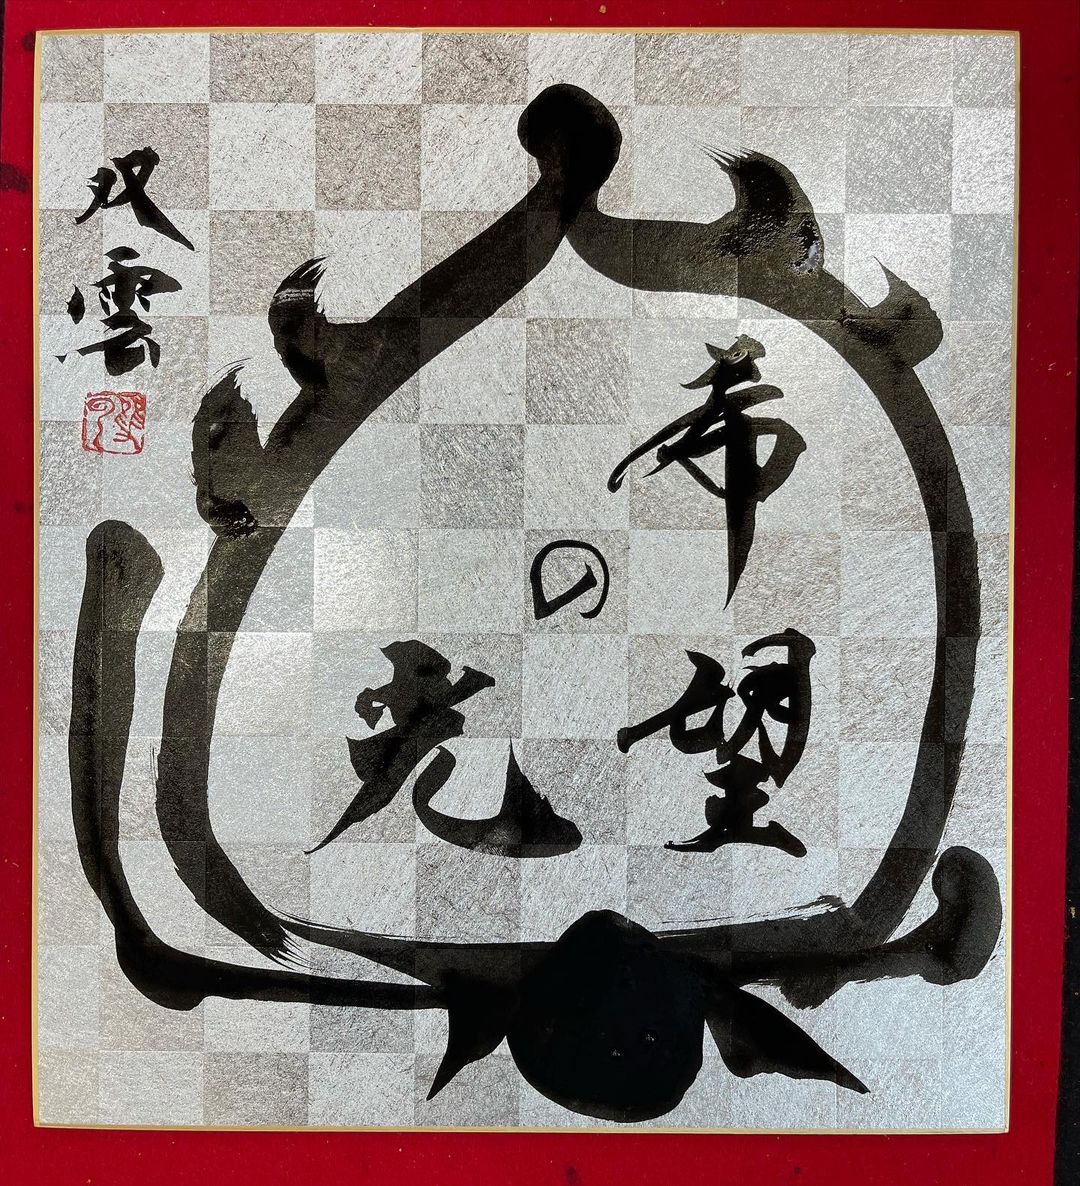 希望
の
光
双雲